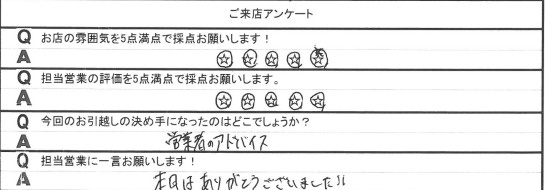 ご来店アンケート
Q お店の雰囲気を5点満点で採点お願いします！
A ☆☆☆☆☆
Q 担当営業の評価を5点満点で採点お願いします。
A ☆☆☆☆☆
Q 今回のお引越しの決め手になったのはどこでしょうか？
A 営業者のアドバイス
Q 担当営業に一言お願いします！
A 本日はありがとうございました!!